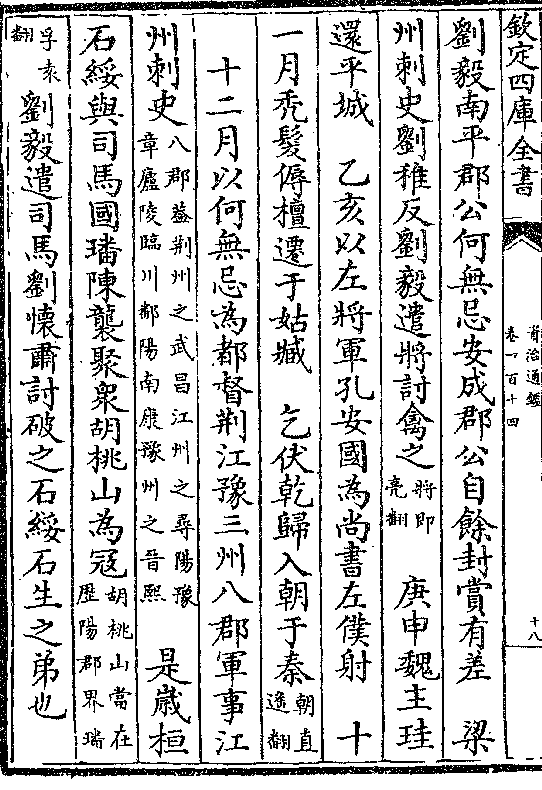 欽定四庫全書
資治通鑑
卷一百十四
十八
劉毅南平郡公何無忌安成郡公自餘封賞有差　梁
州刺史劉稚反劉毅遣將討禽之將即亮翻　庚申魏主珪
還平城　乙亥以左將軍孔安國為尚書左僕射　十
一月禿髮傉檀遷于姑臧　乞伏乾歸入朝于秦朝直遙翻
十二月以何無忌為都督荆江豫三州八郡軍事江
州刺史八郡葢荆州之武昌江州之尋陽豫章廬陵臨川鄱陽南康豫州之晉熙　是歲桓
石綏與司馬國璠陳襲聚衆胡桃山為冦胡桃山當在歷陽郡界璠
孚袁翻劉毅遣司馬劉懷肅討破之石綏石生之弟也